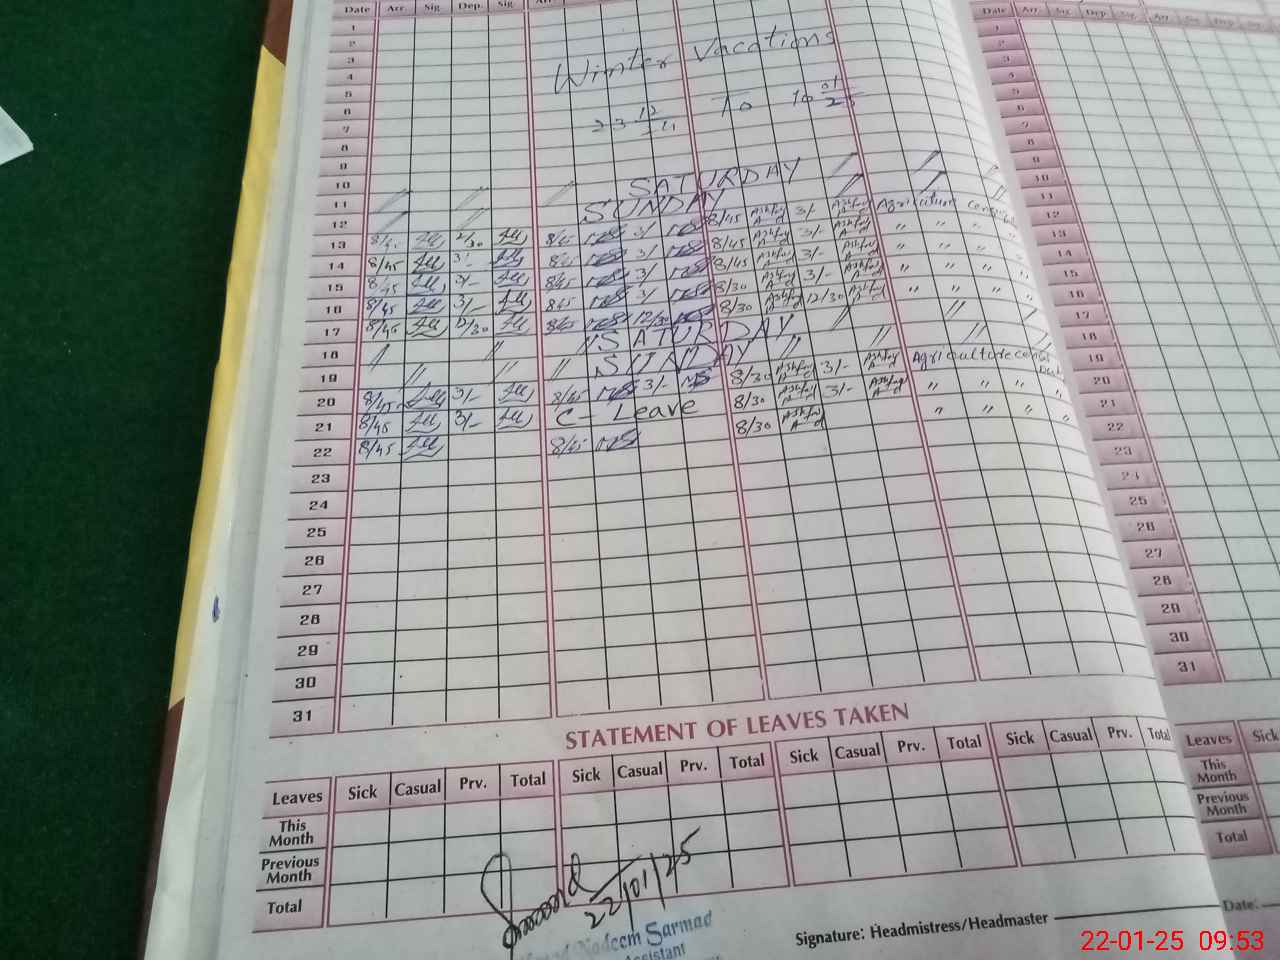 Date Arr Sig Dep. Sig. Arr Date Arr Sig Dep Sig. Arr. Sig Dep Sig
1 1
2 2
3 Winter Vacations 3
4 4
5 23 12/24 To 10 01/25 5
6 6
7 7
8 8
9 9
10 10
11 // // // SATURDAY // // 11
12 SUNDAY 12
13 8/45 12/30 8/45 3/ 8/45 Ashfaq A-d 3/- Ashfaq A-d Agriculture 13
14 8/45 3/- 3/ 8/45 Ashfaq A-d 3/- Ashfaq A-d " " " " 14
15 8/45 3/- 8/45 3/ 8/45 Ashfaq A-d 3/- Ashfaq A-d " " " " 15
16 8/45 3/- 8/45 3/ 8/30 Ashfaq A-d 3/- Ashfaq A-d " " " " 16
17 8/45 12/30 8/45 12/30 8/30 Ashfaq A-d 12/30 Ashfaq A-d " " " " 17
18 // // // SATURDAY // // 18
19 // // // SUNDAY // // // // 19
20 8/45 3/- 8/45 3/- 8/30 Ashfaq A-d 3/- Ashfaq A-d Agriculture census 20
21 8/45 3/- C- Leave 8/30 Ashfaq A-d 3/- Ashfaq A-d " " " " 21
22 8/45 8/45 8/30 Ashfaq A-d " " " " 22
23 23
24 24
25 25
26 26
27 27
28 28
29 29
30 30
31 31
STATEMENT OF LEAVES TAKEN
Leaves Sick Casual Prv. Total Sick Casual Prv. Total Sick Casual Prv. Total Sick Casual Prv. Total Leaves Sick
This Month This Month
Previous Month Previous Month
Total Total
22/01/25
Nadeem Sarmad
Assistant
Signature: Headmistress/Headmaster Date:
22-01-25 09:53